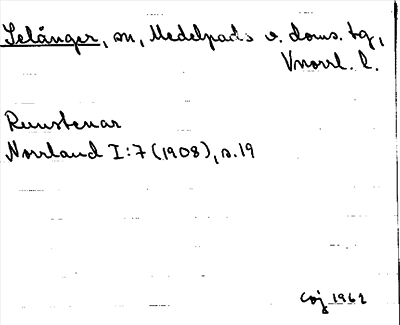 Selånger, sn, Medelpads v. doms. tg,
Vnorrl. l.
Runstenar
Norrland I:7 (1908), s. 19
Coj 1962